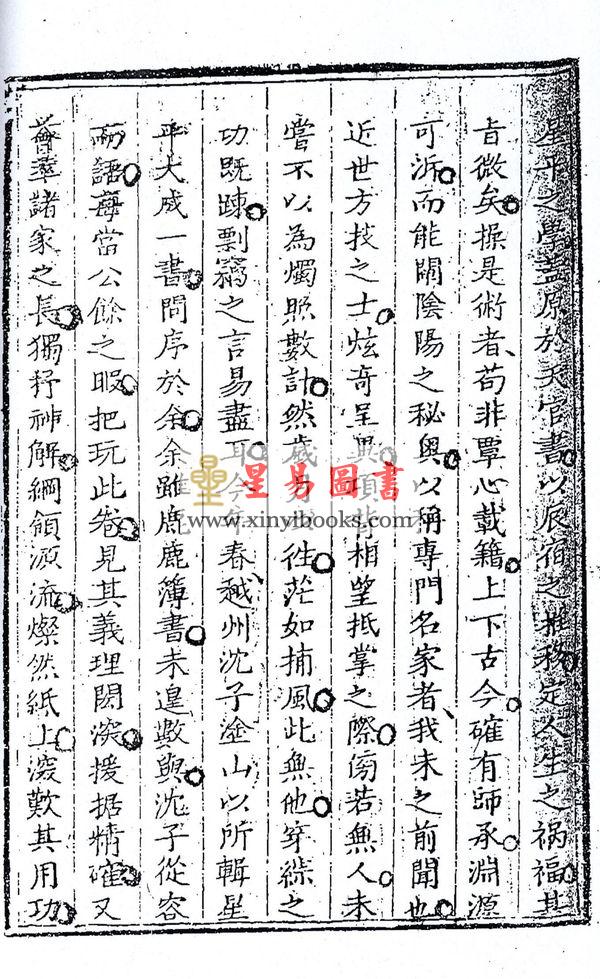 星平之學蓋原於天官書以辰宿之推移定人生之禍福其
旨微矣操是術者苟非覃心載籍上下古今確有師承淵源
可泝而能闡陰陽之秘奧以稱專門名家者我未之前聞也
近世方技之士炫奇呈異項背相望抵掌之際傍若無人未
嘗不以為燭照數計然歲易往茫如捕風此無他穿綜之
功既踈剽竊之言易盡耳今年春越州沈子塗山以所輯星
平大成一書問序於余余雖鹿鹿簿書未遑數與沈子從容
而語每當公餘之暇把玩此卷見其義理閎深援据精確又
薈萃諸家之長獨抒神解綱領源流燦然紙上深歎其用功
星易圖書
www.xinyibooks.com